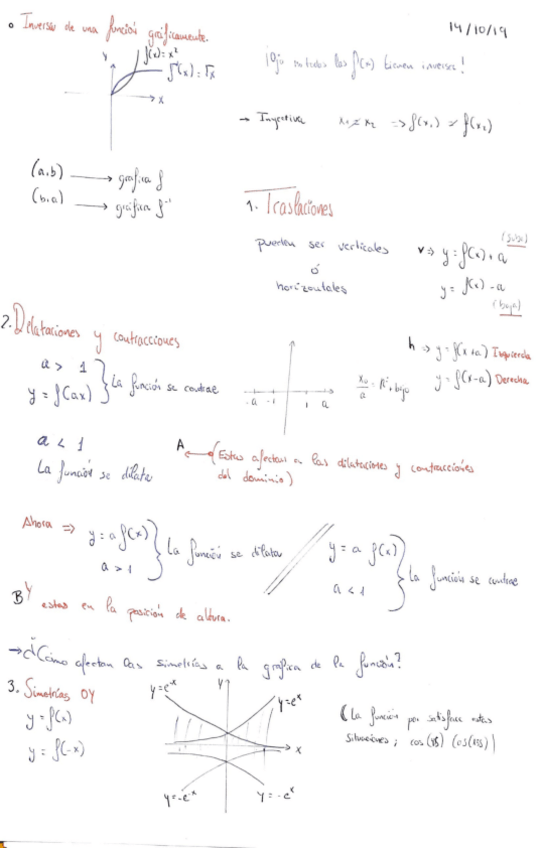 o Inversas de una función gráficamente.
14/10/19
y
f(x) = x²
f⁻¹(x) = √x
x
¡Ojo no todas las f(x) tienen inversa!
→ Inyectiva x₁ ≠ x₂ ⇒ f(x₁) ≠ f(x₂)
(a,b) → gráfica f
(b,a) → gráfica f⁻¹
1. Traslaciones
pueden ser verticales
ó
horizontales
(sube)
v ⇒ y = f(x) + a
y = f(x) - a
(baja)
h ⇒ y = f(x+a) Izquierda
y = f(x-a) Derecha
2. Dilataciones y contracciones
a > 1
y = f(ax)
La función se contrae
-a -1 1 a
a < 1
La función se dilata
A
(Estas afectan a las dilataciones y contracciones
del dominio)
Ahora ⇒ y = a f(x)
a > 1
La función se dilata
y = a f(x)
a < 1
La función se contrae
B Y estas en la posición de altura.
→ ¿Cómo afectan las simetrías a la gráfica de la función?
3. Simetrías OY
y = f(x)
y = f(-x)
y = e⁻ˣ
y
y = eˣ
x
y = -e⁻ˣ
y = -eˣ
(La función par satisface estas
situaciones;